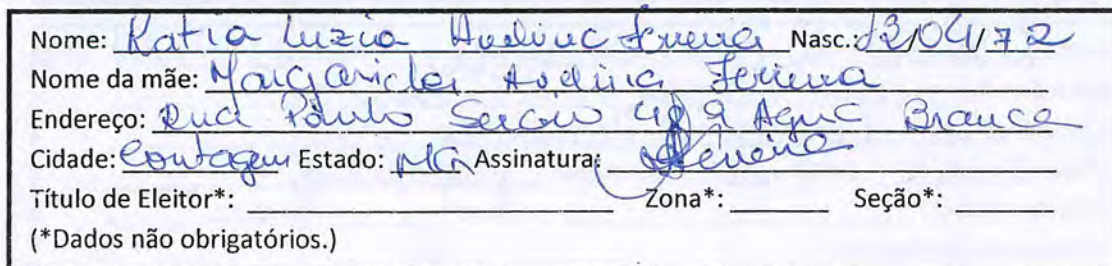 Nome: Katia Luzia Avelina Ferreira Nasc.: 12/04/72
Nome da mãe: Margarida Avelina Ferreira
Endereço: Rua Paulo Sergio Agua Branca
Cidade: Contagem Estado: MG Assinatura: Ferreira
Título de Eleitor*: Zona*: Seção*:
(*Dados não obrigatórios.)